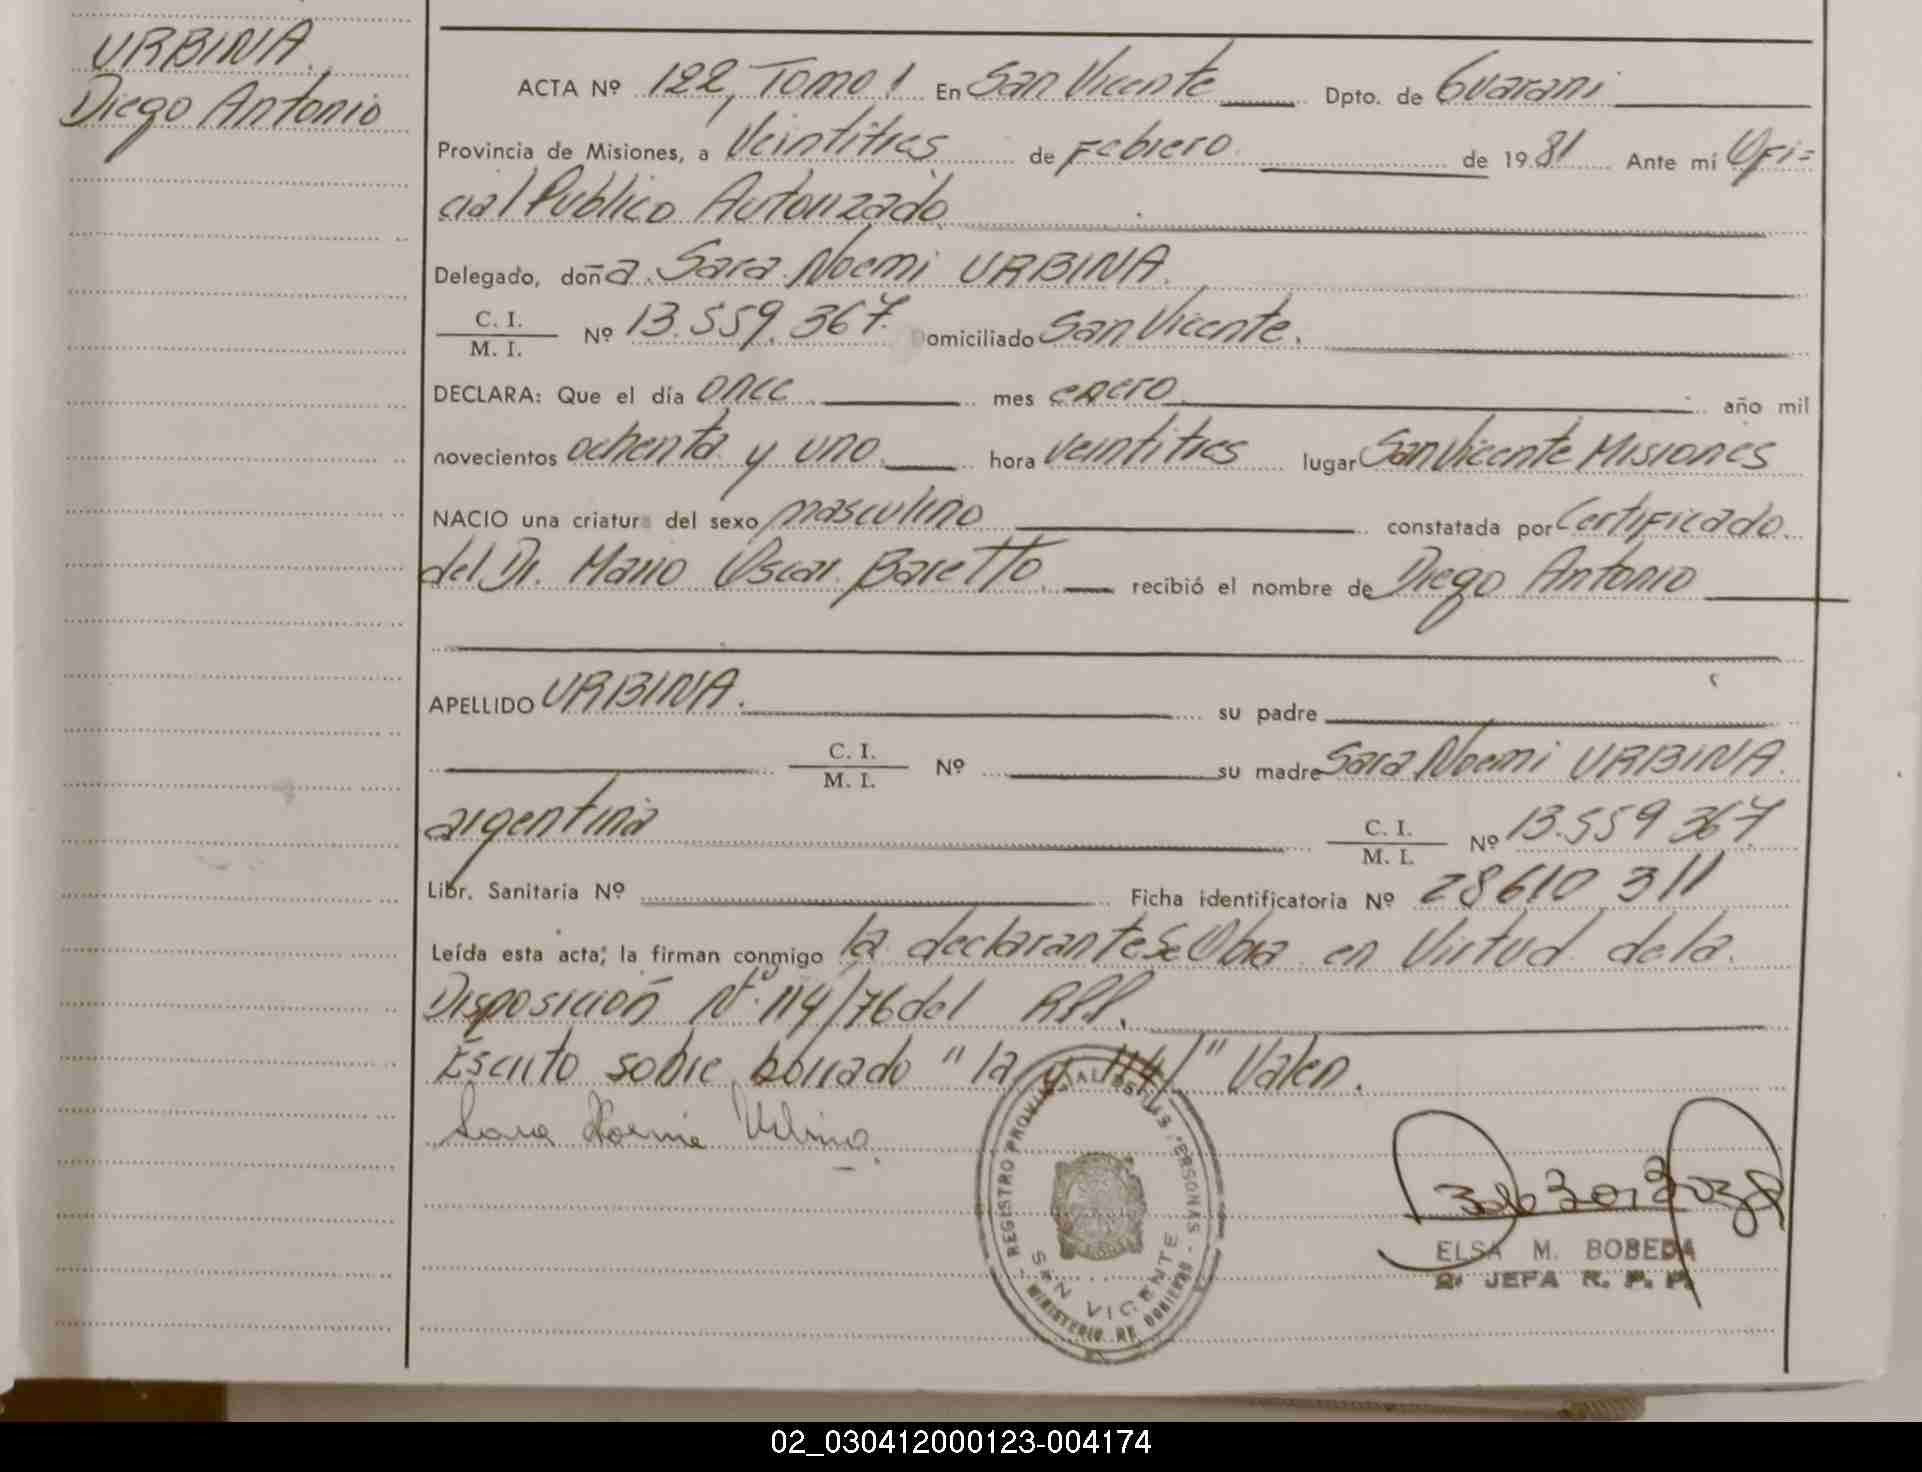 URBINA
Diego Antonio
ACTA Nº 122, Tomo 1 En San Vicente Dpto. de Guarani
Provincia de Misiones, a Veintitres de Febrero de 1981 Ante mí Ofi=
cial Publico Autorizado
Delegado, doña Sara Noemi URBINA.
C. I.
M. I. Nº 13.559.367. Domiciliado San Vicente.
DECLARA: Que el día once mes enero año mil
novecientos ochenta y uno hora veintitres lugar San Vicente Misiones
NACIO una criatura del sexo masculino constatada por Certificado
del Dr. Mario Oscar Baretto. recibió el nombre de Diego Antonio
APELLIDO URBINA. su padre
C. I.
M. I. Nº su madre Sara Noemi URBINA.
argentina C. I.
M. I. Nº 13.559 367.
Libr. Sanitaria Nº Ficha identificatoria Nº 28610 311
Leída esta acta; la firman conmigo la declarante Se Obra en Virtud de la
Disposición Nº. 114/76 del R.P.P.
Escrito sobre borrado " la y 114/" Valen.
Sara Noemi Urbina.
REGISTRO PROVINCIAL DE LAS PERSONAS - MINISTERIO DE GOBIERNO -
SAN VICENTE
ELSA M. BOBEDA
2ª JEFA R. P. P.
02_030412000123-004174